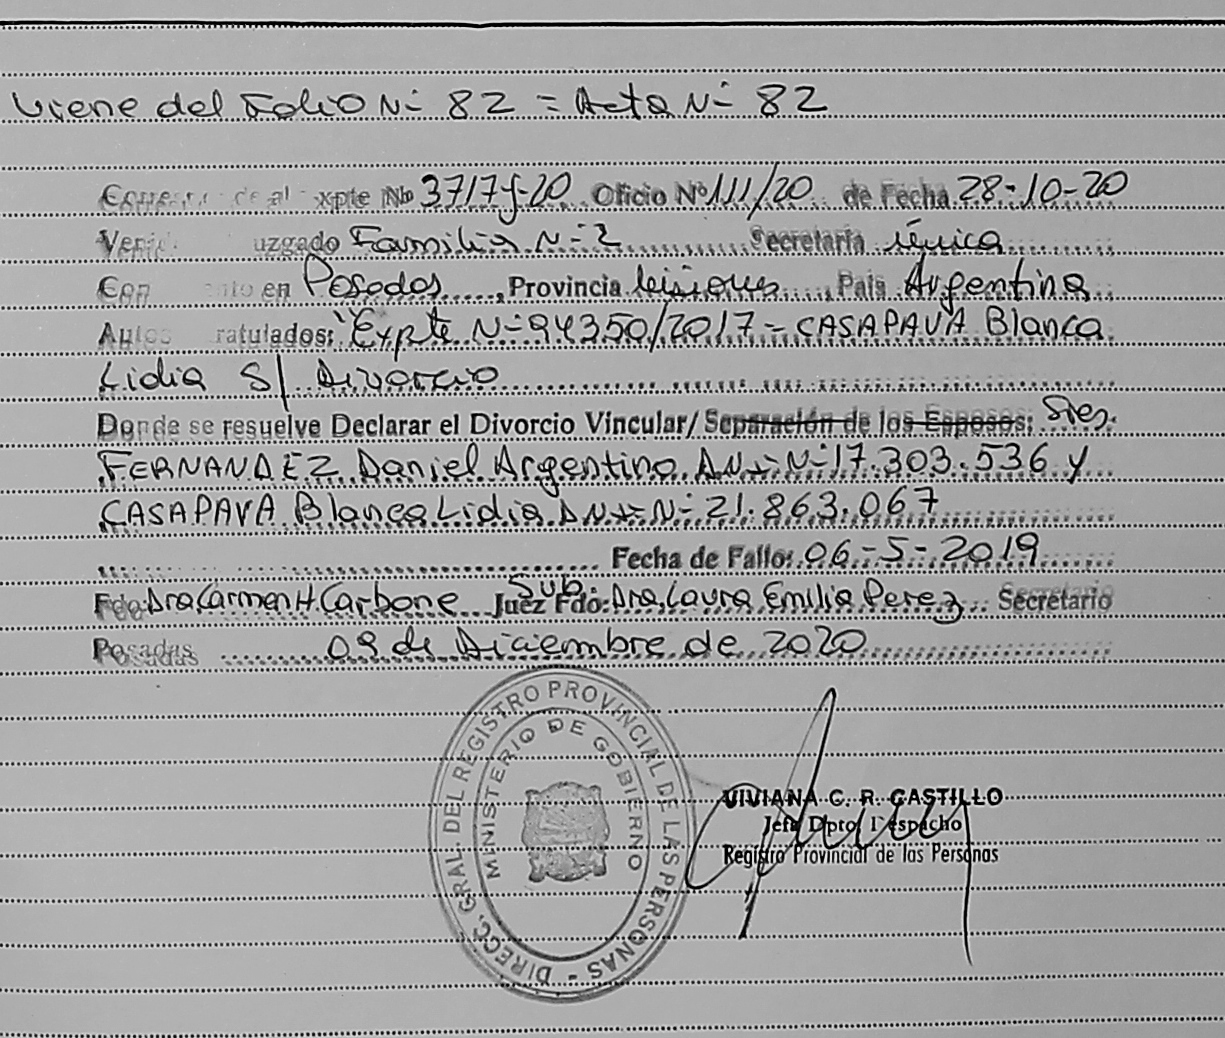 Viene del Folio N- 82 = Acta N- 82
al xpte Nº 3717-J-20 Oficio Nº 111/20 de Fecha 28-10-20
uzgado Familia N-2 Secretaría única
Con en Posadas, Provincia Misiones, País Argentina
Autos ratulados: "Expte N-94350/2017 - CASAPAVA Blanca
Lidia S/ Divorcio
Donde se resuelve Declarar el Divorcio Vincular/ Separación de los Esposos: Sres.
FERNANDEZ Daniel Argentino DNI- N-17.303.536 y
CASAPAVA Blanca Lidia DNI- N- 21.863.067
Fecha de Fallo: 06-5-2019
Fdo: Dra Carmen H. Carbone Juez Sub. Fdo: Dra. Laura Emilia Perez Secretario
Posadas 09 de Diciembre de 2020
DIRECC. GRAL. DEL REGISTRO PROVINCIAL DE LAS PERSONAS -
MINISTERIO DE GOBIERNO
VIVIANA C. R. CASTILLO
Jefa Dpto. Despacho
Registro Provincial de las Personas